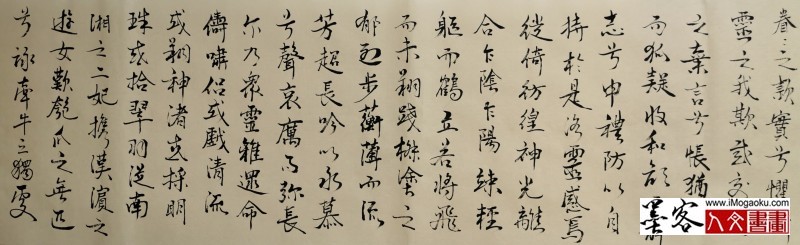 眷〻之款實兮懼
靈之我欺感交
之棄言兮悵猶
而狐疑收和顏
志兮申禮防以自
持於是洛靈感焉
徙倚彷徨神光離
合乍陰乍陽竦輕
軀而鶴立若將飛
而未翔踐椒塗之
郁烈步蘅薄而流
芳超長吟以永慕
兮聲哀厲而彌長
爾乃眾靈雜遝命
儔嘯侶或戲清流
或翔神渚或採明
珠或拾翠羽從南
湘之二妃攜漢濱之
遊女歎匏瓜之無匹
兮詠牽牛之獨處
www.iMogaoku.com
墨客人文書畫